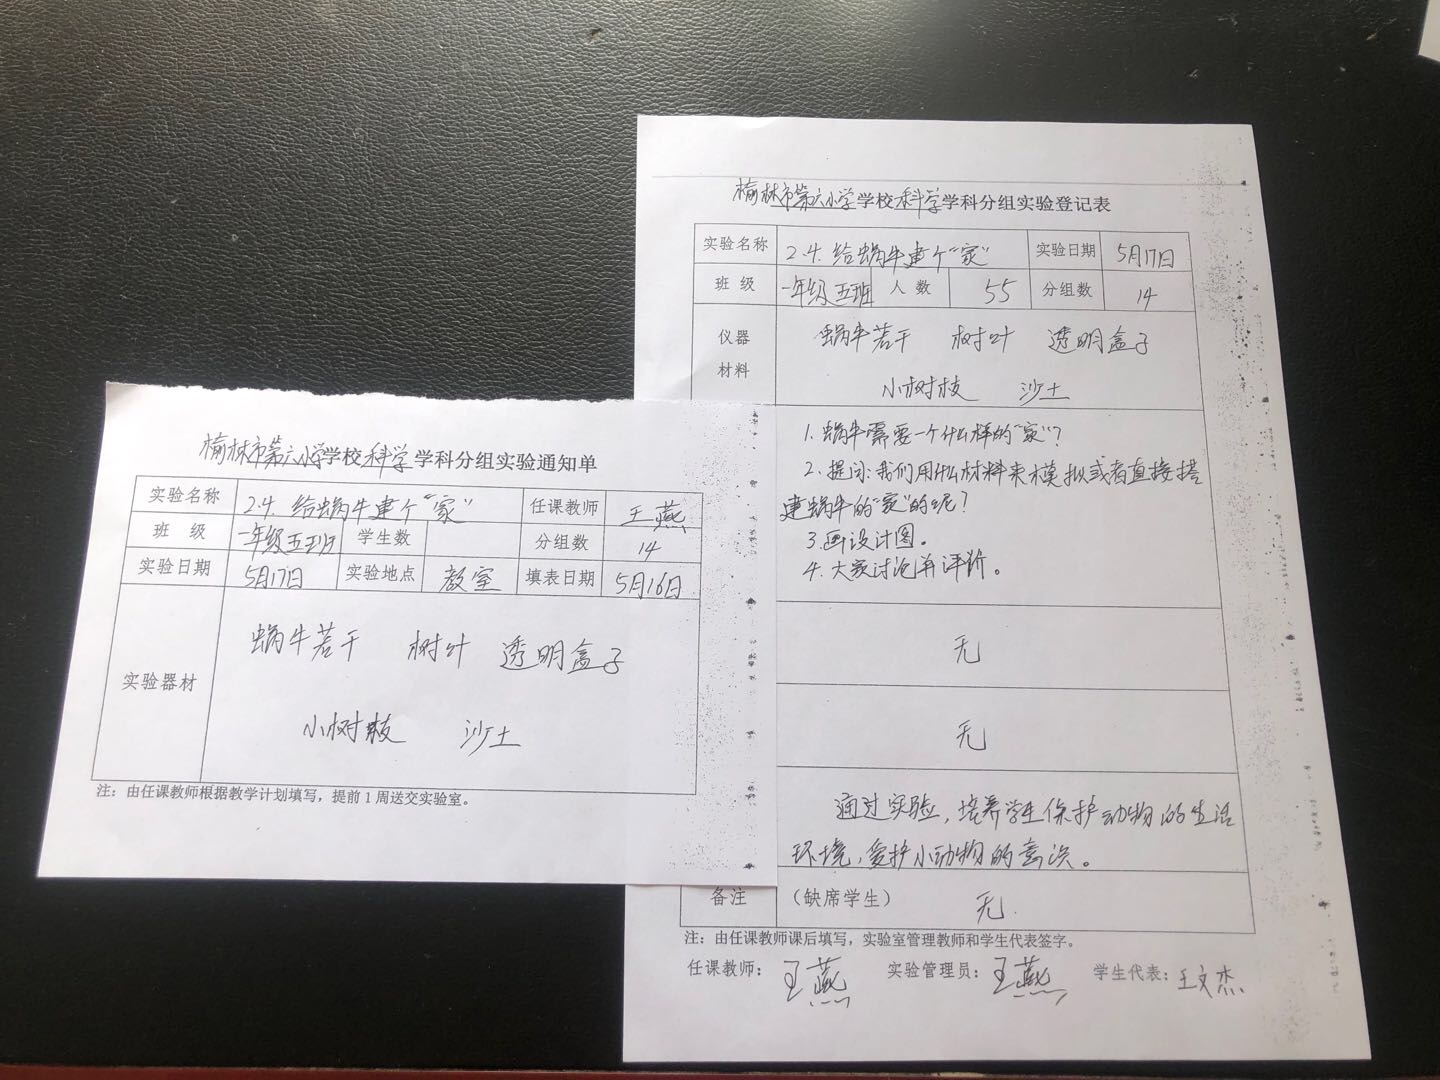 榆林市第六小学学校科学学科分组实验通知单
实验名称 2.4. 给蜗牛建个“家” 任课教师 王燕
班 级 一年级五班 学生数 分组数 14
实验日期 5月17日 实验地点 教室 填表日期 5月16日
实验器材
蜗牛若干 树叶 透明盒子
小树枝 沙土
注：由任课教师根据教学计划填写，提前1周送交实验室。
榆林市第六小学学校科学学科分组实验登记表
实验名称 2.4. 给蜗牛建个“家” 实验日期 5月17日
班 级 一年级五班 人 数 55 分组数 14
仪器
材料
蜗牛若干 树叶 透明盒子
小树枝 沙土
1. 蜗牛需要一个什么样的“家”？
2. 提问：我们用什么材料来模拟或者直接搭
建蜗牛的“家”的呢？
3. 画设计图。
4. 大家讨论并评价。
无
无
通过实验，培养学生保护动物的生活
环境，爱护小动物的意识。
备注 （缺席学生） 无.
注：由任课教师课后填写，实验室管理教师和学生代表签字。
任课教师：王燕 实验管理员：王燕 学生代表：王文杰